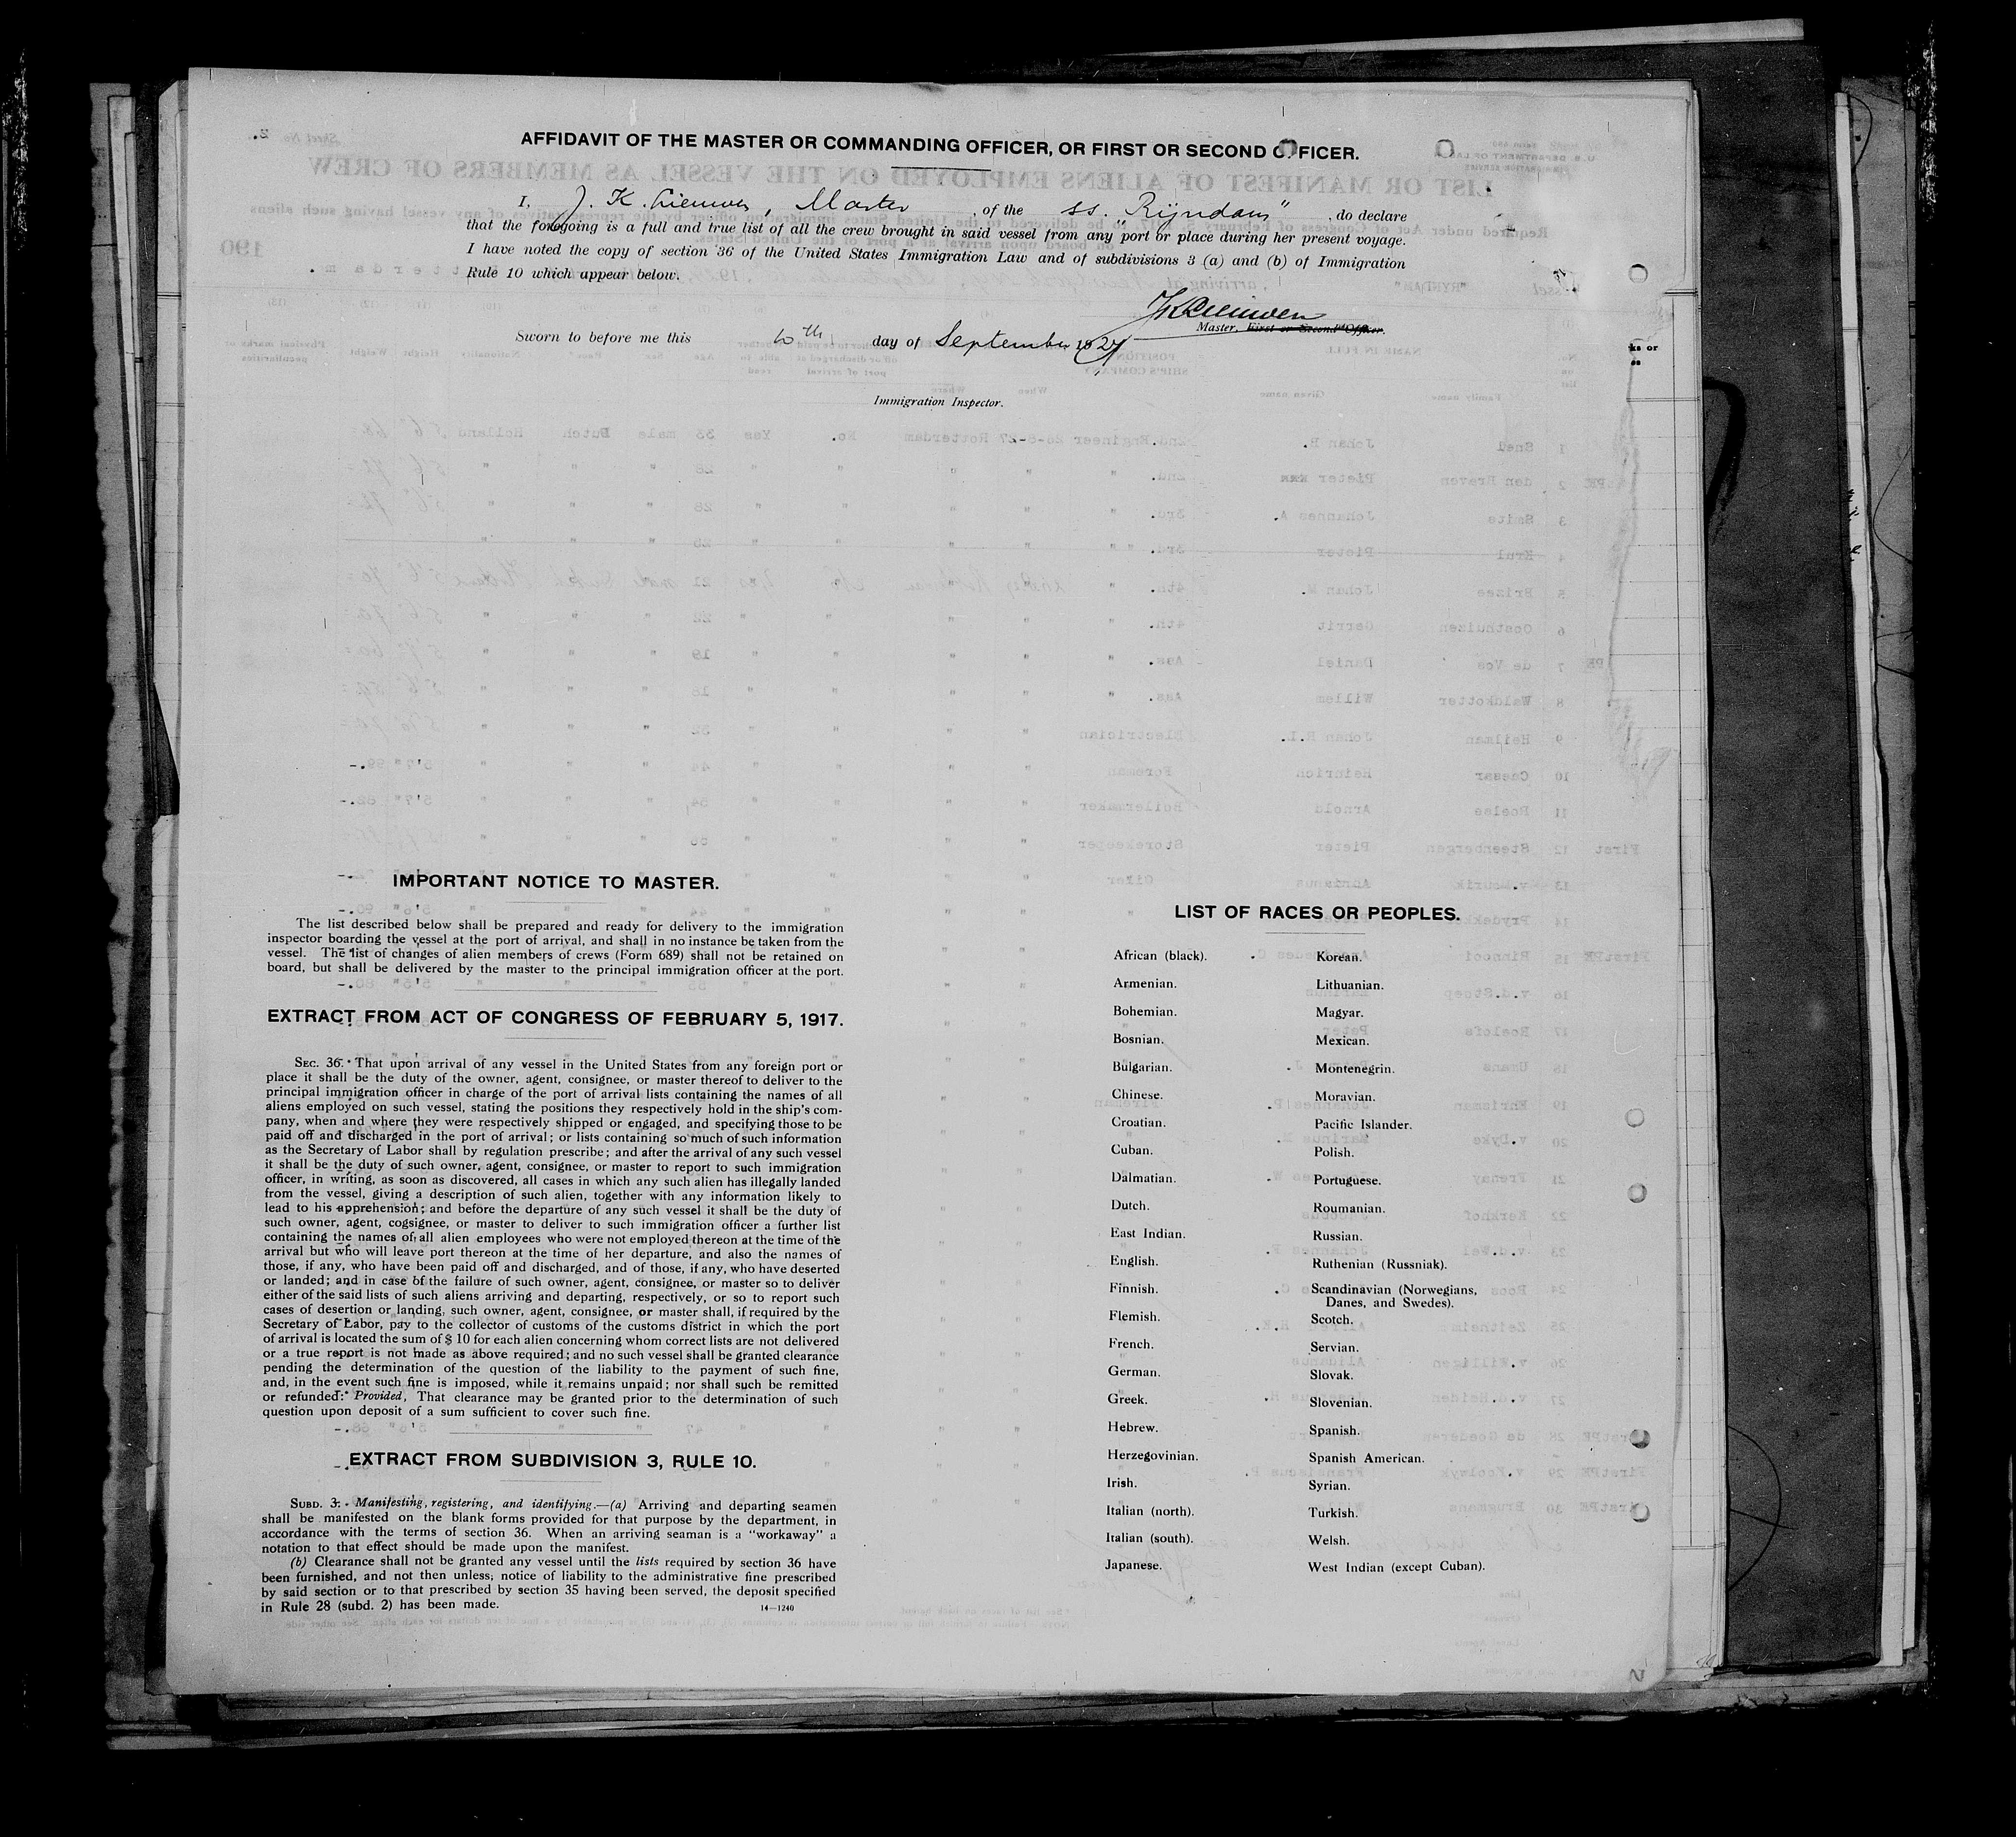 AFFIDAVIT OF THE MASTER OR COMMANDING OFFICER, OR FIRST OR SECOND OFFICER.
I, J. K. Lieuwen, Master, of the ss. "Rijndam", do declare
that the foregoing is a full and true list of all the crew brought in said vessel from any port or place during her present voyage.
I have noted the copy of section 36 of the United States Immigration Law and of subdivisions 3 (a) and (b) of Immigration
Rule 10 which appear below.
JKLieuwen
Master, First or Second Officer.
Sworn to before me this 10th day of September 1927
Immigration Inspector.
IMPORTANT NOTICE TO MASTER.
The list described below shall be prepared and ready for delivery to the immigration
inspector boarding the vessel at the port of arrival, and shall in no instance be taken from the
vessel. The list of changes of alien members of crews (Form 689) shall not be retained on
board, but shall be delivered by the master to the principal immigration officer at the port.
EXTRACT FROM ACT OF CONGRESS OF FEBRUARY 5, 1917.
SEC. 36. That upon arrival of any vessel in the United States from any foreign port or
place it shall be the duty of the owner, agent, consignee, or master thereof to deliver to the
principal immigration officer in charge of the port of arrival lists containing the names of all
aliens employed on such vessel, stating the positions they respectively hold in the ship's com-
pany, when and where they were respectively shipped or engaged, and specifying those to be
paid off and discharged in the port of arrival; or lists containing so much of such information
as the Secretary of Labor shall by regulation prescribe; and after the arrival of any such vessel
it shall be the duty of such owner, agent, consignee, or master to report to such immigration
officer, in writing, as soon as discovered, all cases in which any such alien has illegally landed
from the vessel, giving a description of such alien, together with any information likely to
lead to his apprehension; and before the departure of any such vessel it shall be the duty of
such owner, agent, cogsignee, or master to deliver to such immigration officer a further list
containing the names of all alien employees who were not employed thereon at the time of the
arrival but who will leave port thereon at the time of her departure, and also the names of
those, if any, who have been paid off and discharged, and of those, if any, who have deserted
or landed; and in case of the failure of such owner, agent, consignee, or master so to deliver
either of the said lists of such aliens arriving and departing, respectively, or so to report such
cases of desertion or landing, such owner, agent, consignee, or master shall, if required by the
Secretary of Labor, pay to the collector of customs of the customs district in which the port
of arrival is located the sum of $ 10 for each alien concerning whom correct lists are not delivered
or a true report is not made as above required; and no such vessel shall be granted clearance
pending the determination of the question of the liability to the payment of such fine,
and, in the event such fine is imposed, while it remains unpaid; nor shall such be remitted
or refunded: Provided, That clearance may be granted prior to the determination of such
question upon deposit of a sum sufficient to cover such fine.
EXTRACT FROM SUBDIVISION 3, RULE 10.
SUBD. 3. Manifesting, registering, and identifying.—(a) Arriving and departing seamen
shall be manifested on the blank forms provided for that purpose by the department, in
accordance with the terms of section 36. When an arriving seaman is a "workaway" a
notation to that effect should be made upon the manifest.
(b) Clearance shall not be granted any vessel until the lists required by section 36 have
been furnished, and not then unless, notice of liability to the administrative fine prescribed
by said section or to that prescribed by section 35 having been served, the deposit specified
in Rule 28 (subd. 2) has been made.
14—1240
LIST OF RACES OR PEOPLES.
African (black).
Armenian.
Bohemian.
Bosnian.
Bulgarian.
Chinese.
Croatian.
Cuban.
Dalmatian.
Dutch.
East Indian.
English.
Finnish.
Flemish.
French.
German.
Greek.
Hebrew.
Herzegovinian.
Irish.
Italian (north).
Italian (south).
Japanese.
Korean.
Lithuanian.
Magyar.
Mexican.
Montenegrin.
Moravian.
Pacific Islander.
Polish.
Portuguese.
Roumanian.
Russian.
Ruthenian (Russniak).
Scandinavian (Norwegians,
Danes, and Swedes).
Scotch.
Servian.
Slovak.
Slovenian.
Spanish.
Spanish American.
Syrian.
Turkish.
Welsh.
West Indian (except Cuban).